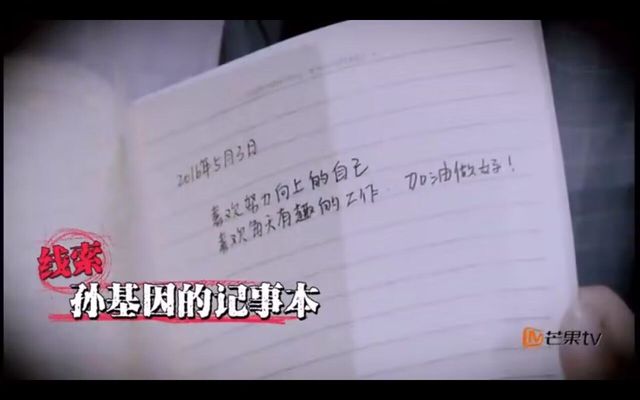 2016年5月3日
喜欢努力向上的自己
喜欢每天有趣的工作. 加油做好!
线索
孙基因的记事本
芒果tv